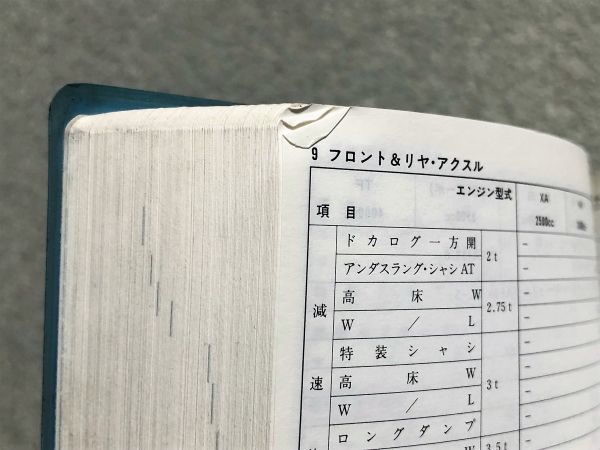 9 フロント&リヤ・アクスル
エンジン型式
XA
項目
2500cc
ドカログ一方開
2t
-
アンダスラング・シャシAT
-
減
高床W
2.75t
-
W/L
-
特装シャシ
-
速
高床W
3t
-
W/L
-
ロングダンプ
-
3.5t
W